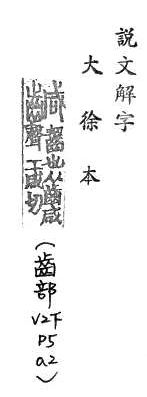 說文解字
大徐本
䶢 齧也从齒咸
聲 工咸切
(齒部V2下P5a2)